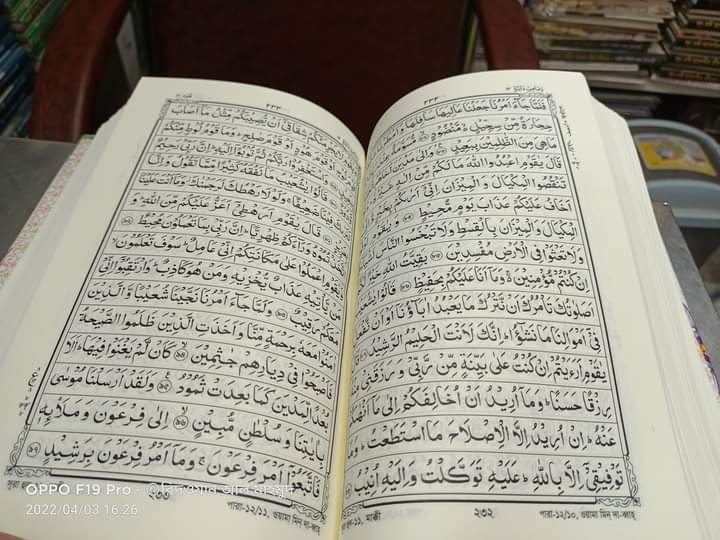 ٢٣٢
فَلَمَّا جَآءَ اَمْرُنَا جَعَلْنَا عَالِيَهَا سَافِلَهَا
حِجَارَةً مِّنْ سِجِّيْلٍ مَّنْضُوْدٍ
مَاهِيَ مِنَ الظّٰلِمِيْنَ بِبَعِيْدٍ وَاِلٰى مَدْيَنَ
قَالَ يٰقَوْمِ اعْبُدُوا اللهَ مَا لَكُمْ مِّنْ اِلٰهٍ
تَنْقُصُوا الْمِكْيَالَ وَالْمِيْزَانَ اِنِّيْٓ اَرٰىكُمْ بِخَيْرٍ
اَخَافُ عَلَيْكُمْ عَذَابَ يَوْمٍ مُّحِيْطٍ ۝٨٤ وَيٰقَوْمِ
الْمِكْيَالَ وَالْمِيْزَانَ بِالْقِسْطِ وَلَا تَبْخَسُوا النَّاسَ
وَلَا تَعْثَوْا فِي الْاَرْضِ مُفْسِدِيْنَ ۝٨٥ بَقِيَّتُ اللهِ خَيْرٌ
اِنْ كُنْتُمْ مُّؤْمِنِيْنَ ۚ وَمَآ اَنَا عَلَيْكُمْ بِحَفِيْظٍ ۝٨٦ قَالُوْا
اَصَلٰوتُكَ تَاْمُرُكَ اَنْ نَّتْرُكَ مَا يَعْبُدُ اٰبَآؤُنَآ اَوْ اَنْ نَّفْعَلَ
فِيْٓ اَمْوَالِنَا مَا نَشٰٓؤُا ؕ اِنَّكَ لَاَنْتَ الْحَلِيْمُ الرَّشِيْدُ
يٰقَوْمِ اَرَءَيْتُمْ اِنْ كُنْتُ عَلٰى بَيِّنَةٍ مِّنْ رَّبِّيْ وَرَزَقَنِيْ
رِزْقًا حَسَنًا ؕ وَمَآ اُرِيْدُ اَنْ اُخَالِفَكُمْ اِلٰى مَآ اَنْهٰىكُمْ
عَنْهُ ؕ اِنْ اُرِيْدُ اِلَّا الْاِصْلَاحَ مَا اسْتَطَعْتُ ؕ وَمَا
تَوْفِيْقِيْٓ اِلَّا بِاللهِ ؕ عَلَيْهِ تَوَكَّلْتُ وَاِلَيْهِ اُنِيْبُ
২৩২
পারা-১২/১০, ওয়ামা মিন দা-ব্বাহ্
٢٣٣
يَجْرِمَنَّكُمْ شِقَاقِيْٓ اَنْ يُّصِيْبَكُمْ مِّثْلُ مَآ اَصَابَ
قَوْمَ نُوْحٍ اَوْ قَوْمَ هُوْدٍ اَوْ قَوْمَ صٰلِحٍ ؕ وَمَا قَوْمُ لُوْطٍ مِّنْكُمْ
وَاسْتَغْفِرُوْا رَبَّكُمْ ثُمَّ تُوْبُوْٓا اِلَيْهِ ؕ اِنَّ رَبِّيْ رَحِيْمٌ
قَالُوْا يٰشُعَيْبُ مَا نَفْقَهُ كَثِيْرًا مِّمَّا تَقُوْلُ وَاِنَّا
فِيْنَا ضَعِيْفًا ۚ وَلَوْلَا رَهْطُكَ لَرَجَمْنٰكَ ؗ وَمَآ اَنْتَ عَلَيْنَا
قَالَ يٰقَوْمِ اَرَهْطِيْٓ اَعَزُّ عَلَيْكُمْ مِّنَ اللهِ ؕ وَ
اتَّخَذْتُمُوْهُ وَرَآءَكُمْ ظِهْرِيًّا ؕ اِنَّ رَبِّيْ بِمَا تَعْمَلُوْنَ مُحِيْطٌ
وَيٰقَوْمِ اعْمَلُوْا عَلٰى مَكَانَتِكُمْ اِنِّيْ عَامِلٌ ؕ سَوْفَ تَعْلَمُوْنَ ۙ
مَنْ يَّاْتِيْهِ عَذَابٌ يُّخْزِيْهِ وَمَنْ هُوَ كَاذِبٌ ؕ وَارْتَقِبُوْٓا اِنِّيْ
مَعَكُمْ رَقِيْبٌ ۝٩٣ وَلَمَّا جَآءَ اَمْرُنَا نَجَّيْنَا شُعَيْبًا وَّالَّذِيْنَ
اٰمَنُوْا مَعَهٗ بِرَحْمَةٍ مِّنَّا وَاَخَذَتِ الَّذِيْنَ ظَلَمُوا الصَّيْحَةُ
فَاَصْبَحُوْا فِيْ دِيَارِهِمْ جٰثِمِيْنَ ۝٩٤ كَاَنْ لَّمْ يَغْنَوْا فِيْهَا ؕ اَلَا
بُعْدًا لِّمَدْيَنَ كَمَا بَعِدَتْ ثَمُوْدُ ۝٩٥ وَلَقَدْ اَرْسَلْنَا مُوْسٰى
بِاٰيٰتِنَا وَسُلْطٰنٍ مُّبِيْنٍ ۝٩٦ اِلٰى فِرْعَوْنَ وَمَلَا۟ئِهٖ
فَاتَّبَعُوْٓا اَمْرَ فِرْعَوْنَ ۚ وَمَآ اَمْرُ فِرْعَوْنَ بِرَشِيْدٍ ۝٩٧
২৩৩
পারা-১২/১১, ওয়ামা মিন দা-ব্বাহ্
OPPO F19 Pro
2022/04/03 16:26